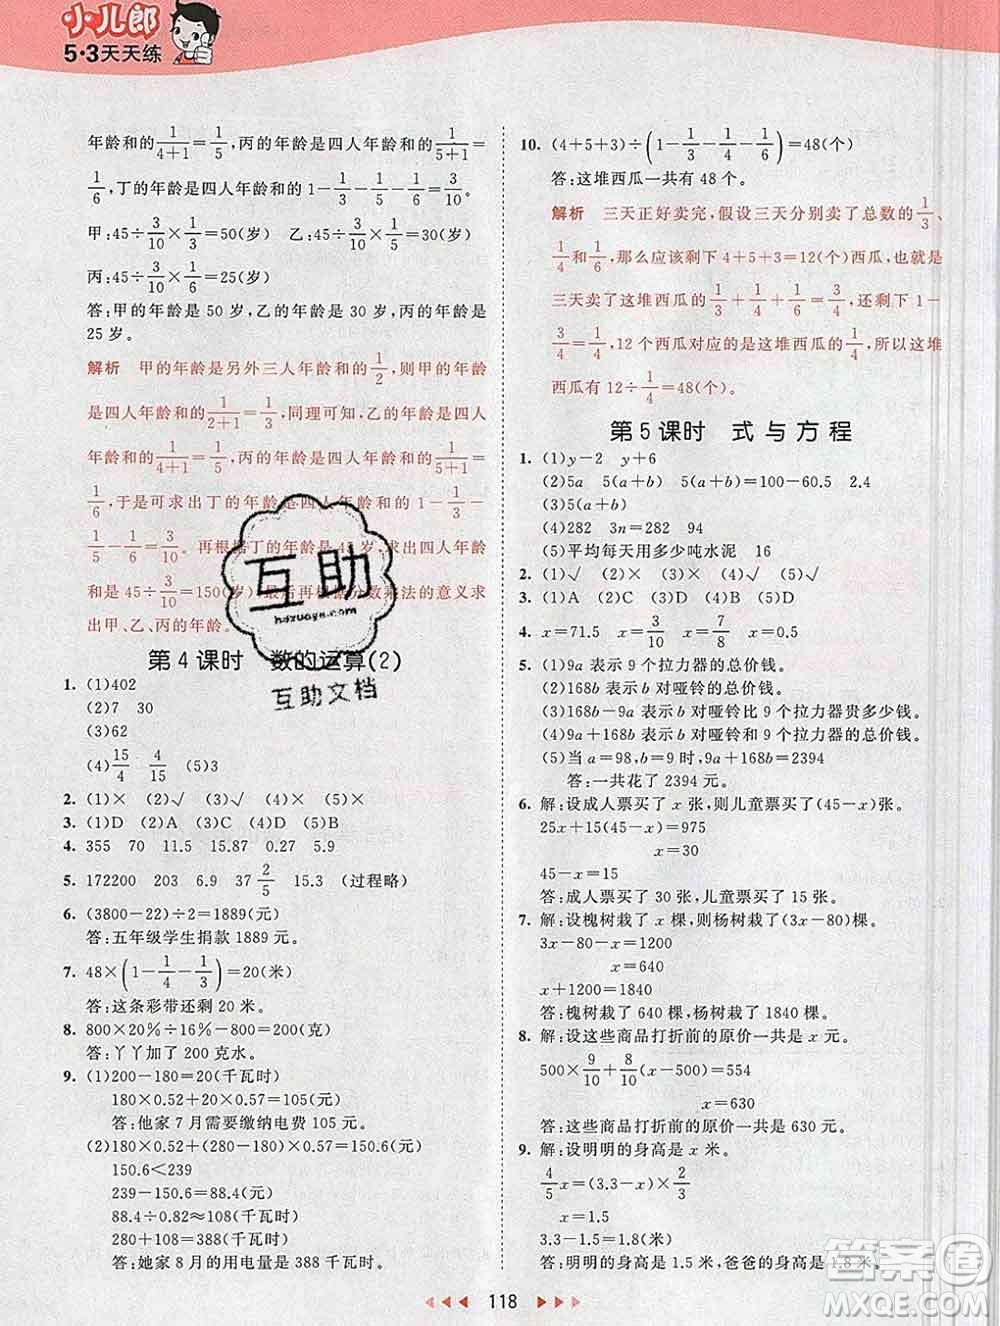 小儿郎
5·3天天练
年龄和的1/(4+1)=1/5,丙的年龄是四人年龄和的1/(5+1)=
1/6,丁的年龄是四人年龄和的1-1/3-1/5-1/6=3/10
甲:45÷3/10×1/3=50(岁) 乙:45÷3/10×1/5=30(岁)
丙:45÷3/10×1/6=25(岁)
答:甲的年龄是 50 岁,乙的年龄是 30 岁,丙的年龄是
25 岁。
解析 甲的年龄是另外三人年龄和的1/2,则甲的年龄
是四人年龄和的1/(2+1)=1/3,同理可知,乙的年龄是四人
年龄和的1/(4+1)=1/5,丙的年龄是四人年龄和的1/(5+1)=
1/6,于是可求出丁的年龄是四人年龄和的1-1/3-
1/5-1/6=3/10。再根据丁的年龄是45岁,求出四人年龄
和是45÷3/10=150(岁),最后再根据分数乘法的意义求
出甲、乙、丙的年龄。
第 4 课时 数的运算(2)
1. (1)402
(2)7 30
(3)62
(4)15/4 4/15 (5)3
2. (1)× (2)√ (3)√ (4)× (5)×
3. (1)D (2)A (3)C (4)C (5)D
4. 355 70 11.5 15.87 0.27 5.9
5. 172200 203 6.9 37 2/5 15.3 (过程略)
6. (3800-22)÷2=1889(元)
答:五年级学生捐款 1889 元。
7. 48×(1-1/4-1/3)=20(米)
答:这条彩带还剩 20 米。
8. 800×20%÷16%-800=200(克)
答:丫丫加了 200 克水。
9. (1)200-180=20(千瓦时)
180×0.52+20×0.57=105(元)
答:他家 7 月需要缴纳电费 105 元。
(2)180×0.52+(280-180)×0.57=150.6(元)
150.6<239
239-150.6=88.4(元)
88.4÷0.82≈108(千瓦时)
280+108=388(千瓦时)
答:她家 8 月的用电量是 388 千瓦时。
10. (4+5+3)÷(1-1/3-1/4-1/6)=48(个)
答:这堆西瓜一共有 48 个。
解析 三天正好卖完,假设三天分别卖了总数的1/3、
1/4和1/6,那么应该剩下 4+5+3=12(个)西瓜,也就是
三天卖了这堆西瓜的1/3+1/4+1/6=3/4,还剩下 1-
3/4=1/4,12 个西瓜对应的是这堆西瓜的1/4,所以这堆
西瓜有 12÷1/4=48(个)。
第 5 课时 式与方程
1. (1)y-2 y+6
(2)5a 5(a+b) 5(a+b)=100-60.5 2.4
(3)5(a+b)
(4)282 3n=282 94
(5)平均每天用多少吨水泥 16
2. (1)√ (2)√ (3)× (4)√ (5)√
3. (1)A (2)C (3)D (4)D
4. x=71.5 x=3/10 x=7/8 x=3
5. (1)9a 表示 9 个拉力器的总价钱。
(2)168b 表示 b 对哑铃的总价钱。
(3)168b-9a 表示 b 对哑铃比 9 个拉力器贵多少钱。
(4)9a+168b 表示 b 对哑铃和 9 个拉力器的总价钱。
(5)当 a=98,b=9 时,9a+168b=2394
答:一共花了 2394 元。
6. 解:设成人票买了 x 张,则儿童票买了(45-x)张。
25x+15(45-x)=975
x=30
45-x=15
答:成人票买了 30 张,儿童票买了 15 张。
7. 解:设槐树栽了 x 棵,则杨树栽了(3x-80)棵。
3x-80-x=1200
x=640
x+1200=1840
答:槐树栽了 640 棵,杨树栽了 1840 棵。
8. 解:设这些商品打折前的原价一共是 x 元。
500×9/10+8/10(x-500)=554
x=630
答:这些商品打折前的原价一共是 630 元。
9. 解:设明明的身高是 x 米。
4/5x=(3.3-x)×2/3
x=1.5
3.3-1.5=1.8(米)
答:明明的身高是 1.5 米,爸爸的身高是 1.8 米。
118
互助
hdzuoye.com
互助文档
答案圈
MXQE.COM